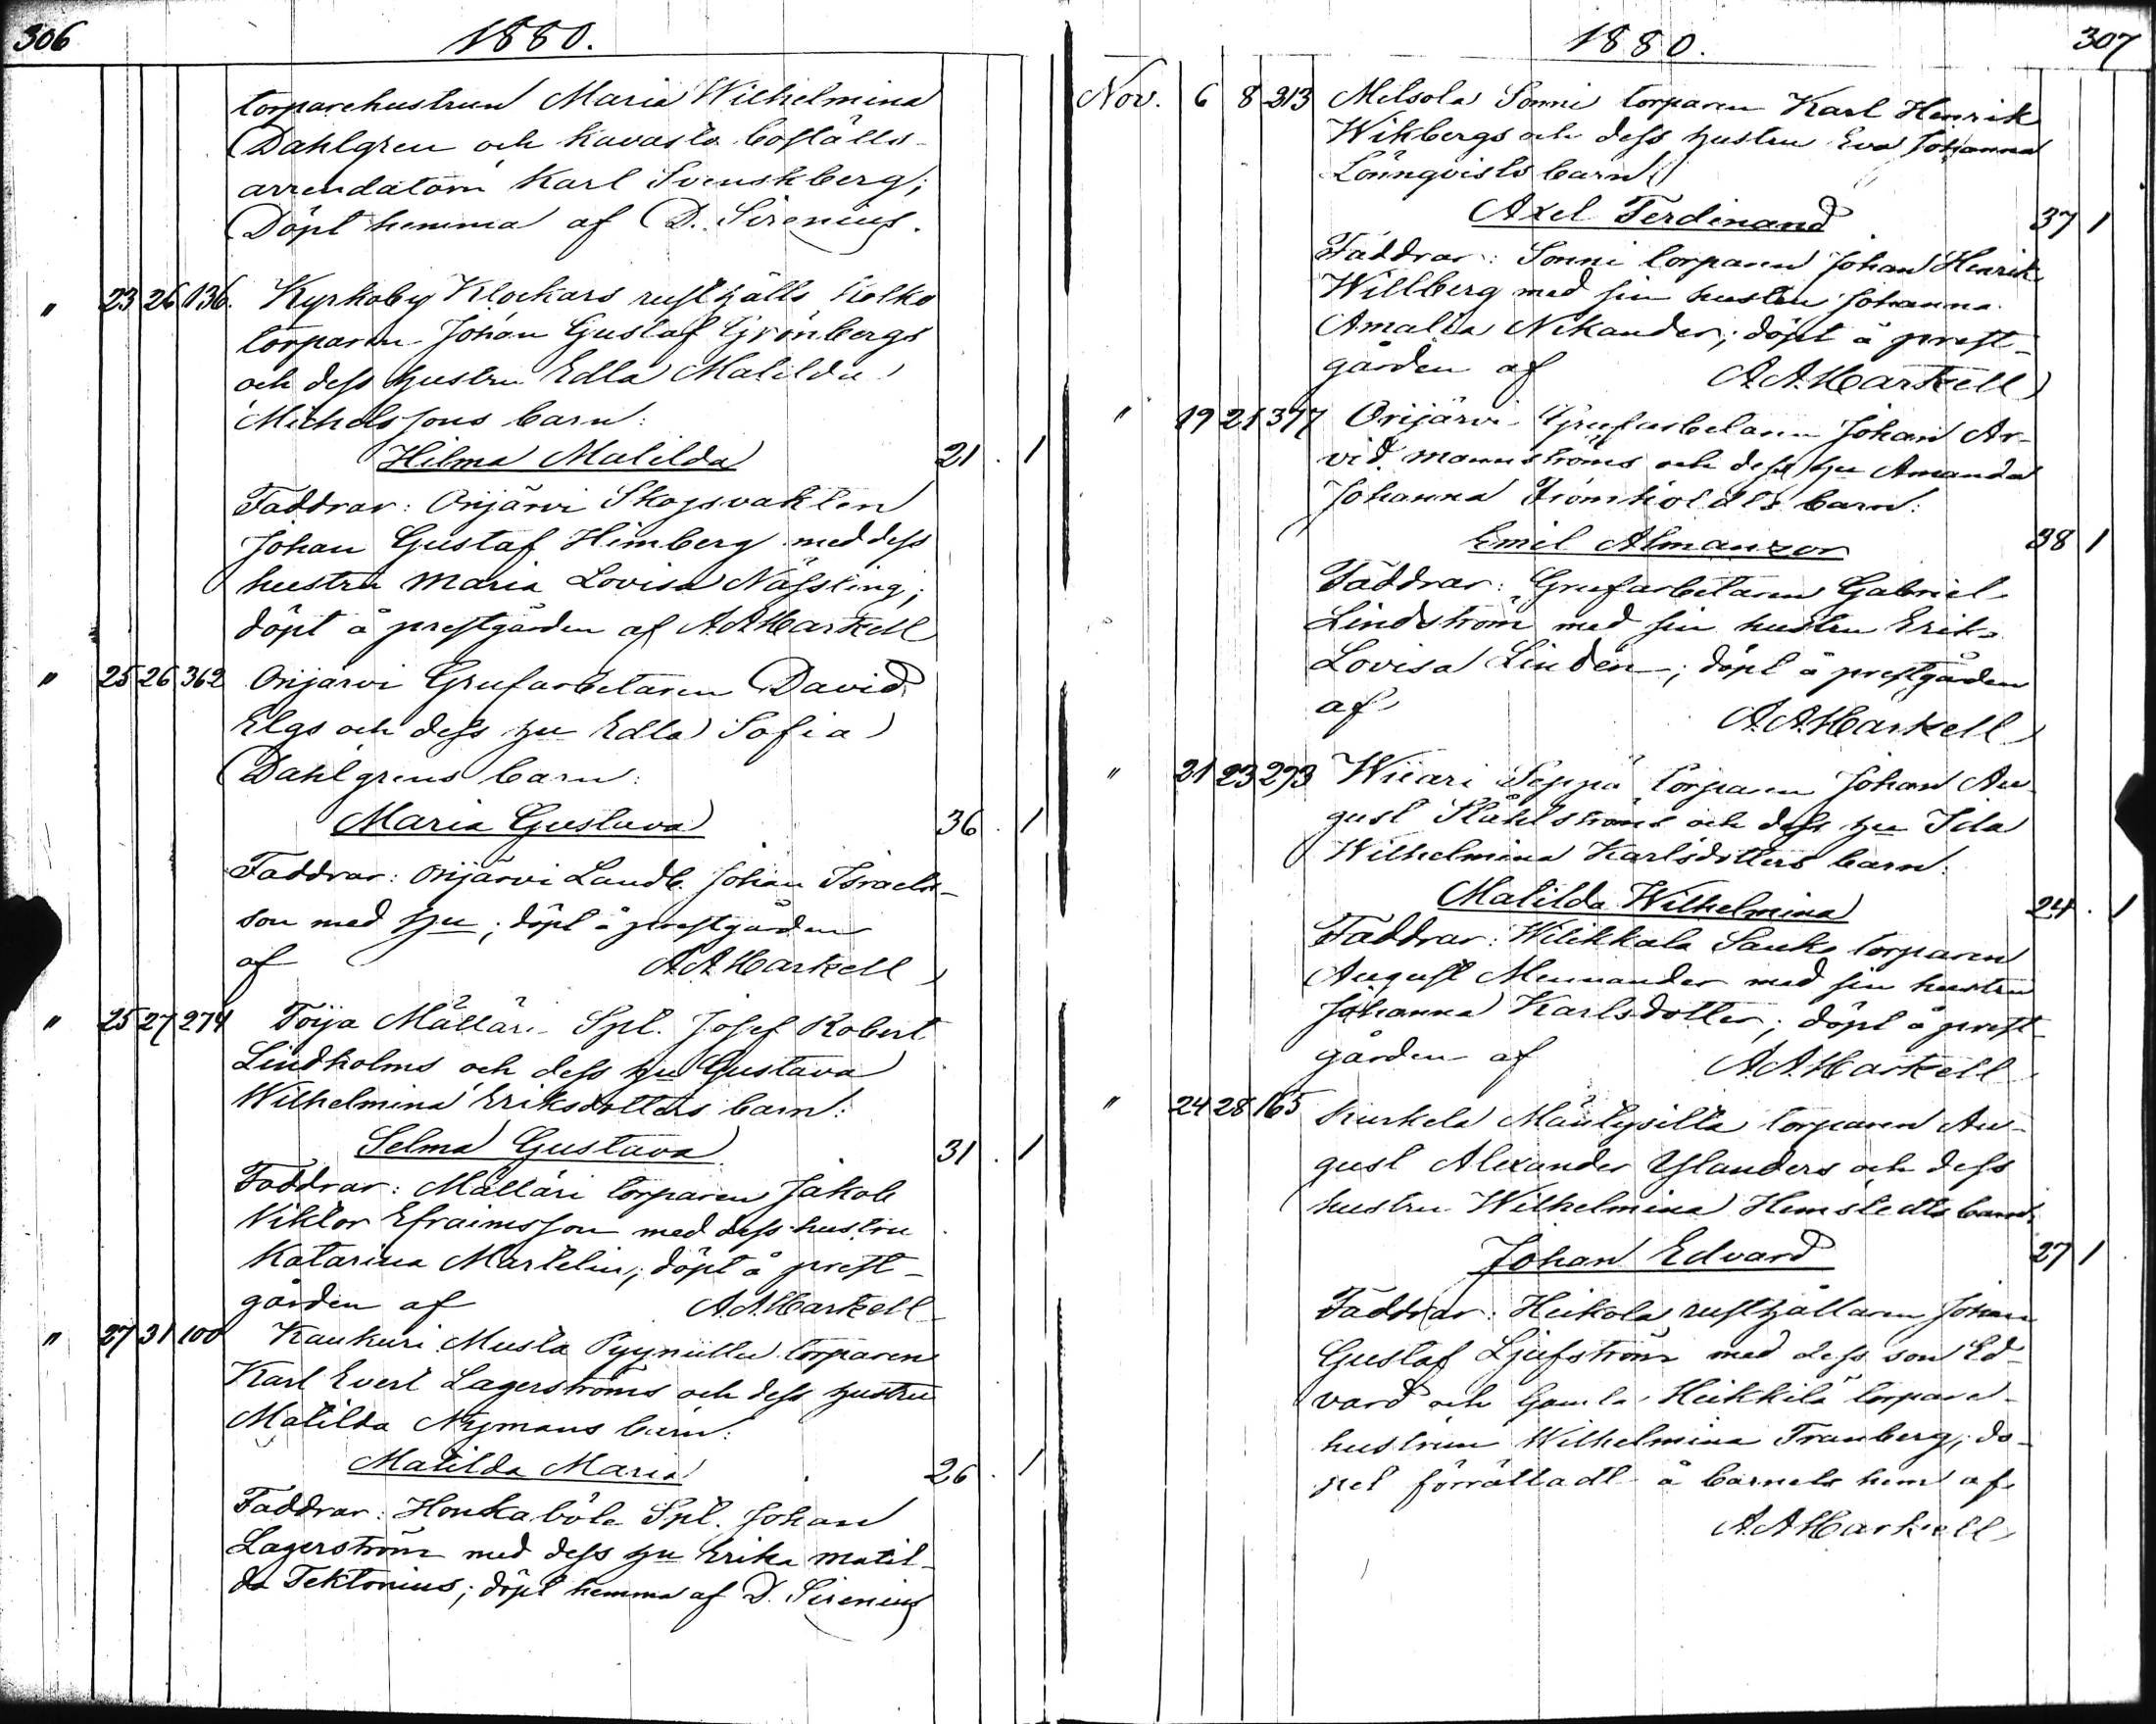 306 1880.
torparehustrun Maria Wilhelmina
Dahlgren och Kavasto boställs-
arrendatorn Karl Svenskberg;
Döpt hemma af D. Sirenius.
" 23 26 136. Kyrkoby Klockars rusthålls Kolko
torparen Johan Gustaf Grönbergs
och dess hustru Edla Matilda
Michelssons barn:
Hilma Matilda 21 . 1
Faddrar: Orijärvi Skogsvakten
Johan Gustaf Himberg med dess
hustru Maria Lovisa Nässling;
döpt å prestgården af A.A.Markell
" 25 26 362 Orijärvi Grufarbetaren David
Elgs och dess hu Edla Sofia
Dahlgrens barn:
Maria Gustava 36 . 1
Faddrar: Orijärvi Landb. Johan Israels-
son med hu; döpt å prestgården
af A.A.Markell
" 25 27 274 Toija Mälläri Spl. Josef Robert
Lindholms och dess hu Gustava
Wilhelmina Eriksdotters barn:
Selma Gustava 31 . 1
Faddrar: Mälläri torparen Jakob
Viktor Efraimsson med dess hustru
Katarina Martelin; döpt å prest-
gården af A.A.Markell
" 27 31 100 Kaukuri Musta Pyymillu torparen
Karl Evert Lagerströms och dess hustru
Matilda Nymans barn:
Matilda Maria 26 . 1
Faddrar: Honkaböle Spl. Johan
Lagerström med dess hu Erika Matil-
da Tektonius; döpt hemma af D. Sirenius
1880. 307
Nov. 6 8 313 Melsola Sonni torparen Karl Henrik
Wikbergs och dess hustru Eva Johanna
Lönnqvists barn
Axel Ferdinand 37 1
Faddrar: Sonni torparen Johan Henrik
Willberg med sin hustru Johanna
Amalia Nikander; döpt å prest-
gården af A.A.Markell
" 19 21 377 Orijärvi Grufarbetaren Johan Ar-
vid Mannströms och dess hu Amanda
Johanna Fromholdts barn:
Emil Almanzor 38 1
Faddrar: Grufarbetaren Gabriel
Lindström med sin hustru Erika
Lovisa Lindén; döpt å prestgården
af A.A.Markell
" 21 23 293 Wiiari Seppä torparen Johan Au-
gust Ståhlströms och dess hu Ida
Wilhelmina Karlsdotters barn:
Matilda Wilhelmina 24 . 1
Faddrar: Wilikkala Sauko torparen
August Mennander med sin hustru
Johanna Karlsdotter; döpt å prest-
gården af A.A.Markell
" 24 28 165 Kurkela Mäntysilta torparen Au-
gust Alexander Ylanders och dess
hustru Wilhelmina Hemstedts barn:
Johan Edvard 27 1
Faddrar: Heikola rusthållaren Johan
Gustaf Ljufström med dess son Ed-
vard och Gamla Heikkilä torpare-
hustrun Wilhelmina Tranberg; do-
pet förrättadt å barnets hem af
A.A.Markell